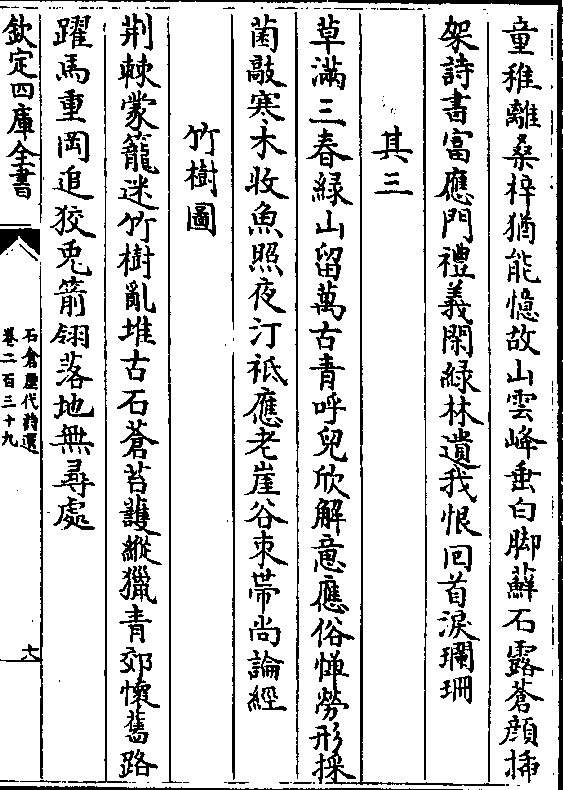 童稚離桑梓猶能憶故山雲峰垂白脚蘚石露蒼顔揷
架詩書富應門禮義閑綠林遺我恨回首淚瓓珊
其三
草滿三春緑山留萬古青呼兒欣解意應俗憚勞形採
菌敲寒木收魚照夜汀祗應老崖谷束帶尚論經
竹樹圖
荆棘蒙籠迷竹樹亂堆古石蒼苔護縱獵青郊懷舊路
躍馬重岡追狡兎箭翎落地無尋處
欽定四庫全書
石倉歷代詩選
卷二百三十九